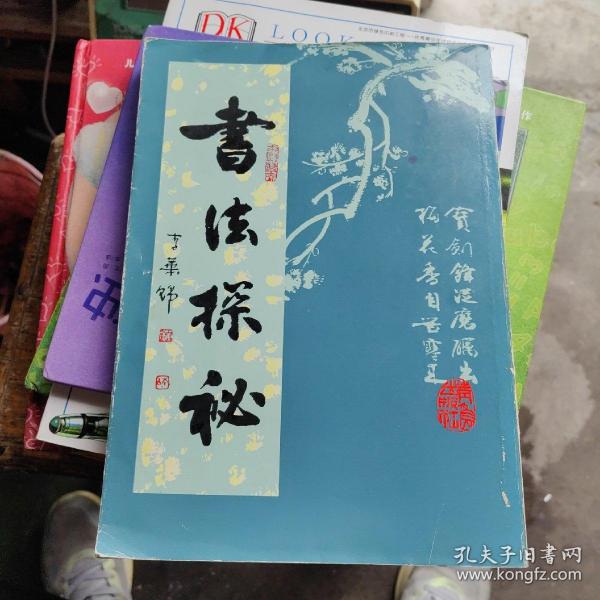 DK
LOOK
書法探秘
李葉錦
寶劍鋒從磨礪出
梅花香自苦寒來
作
孔夫子旧书网
www.kongfz.com